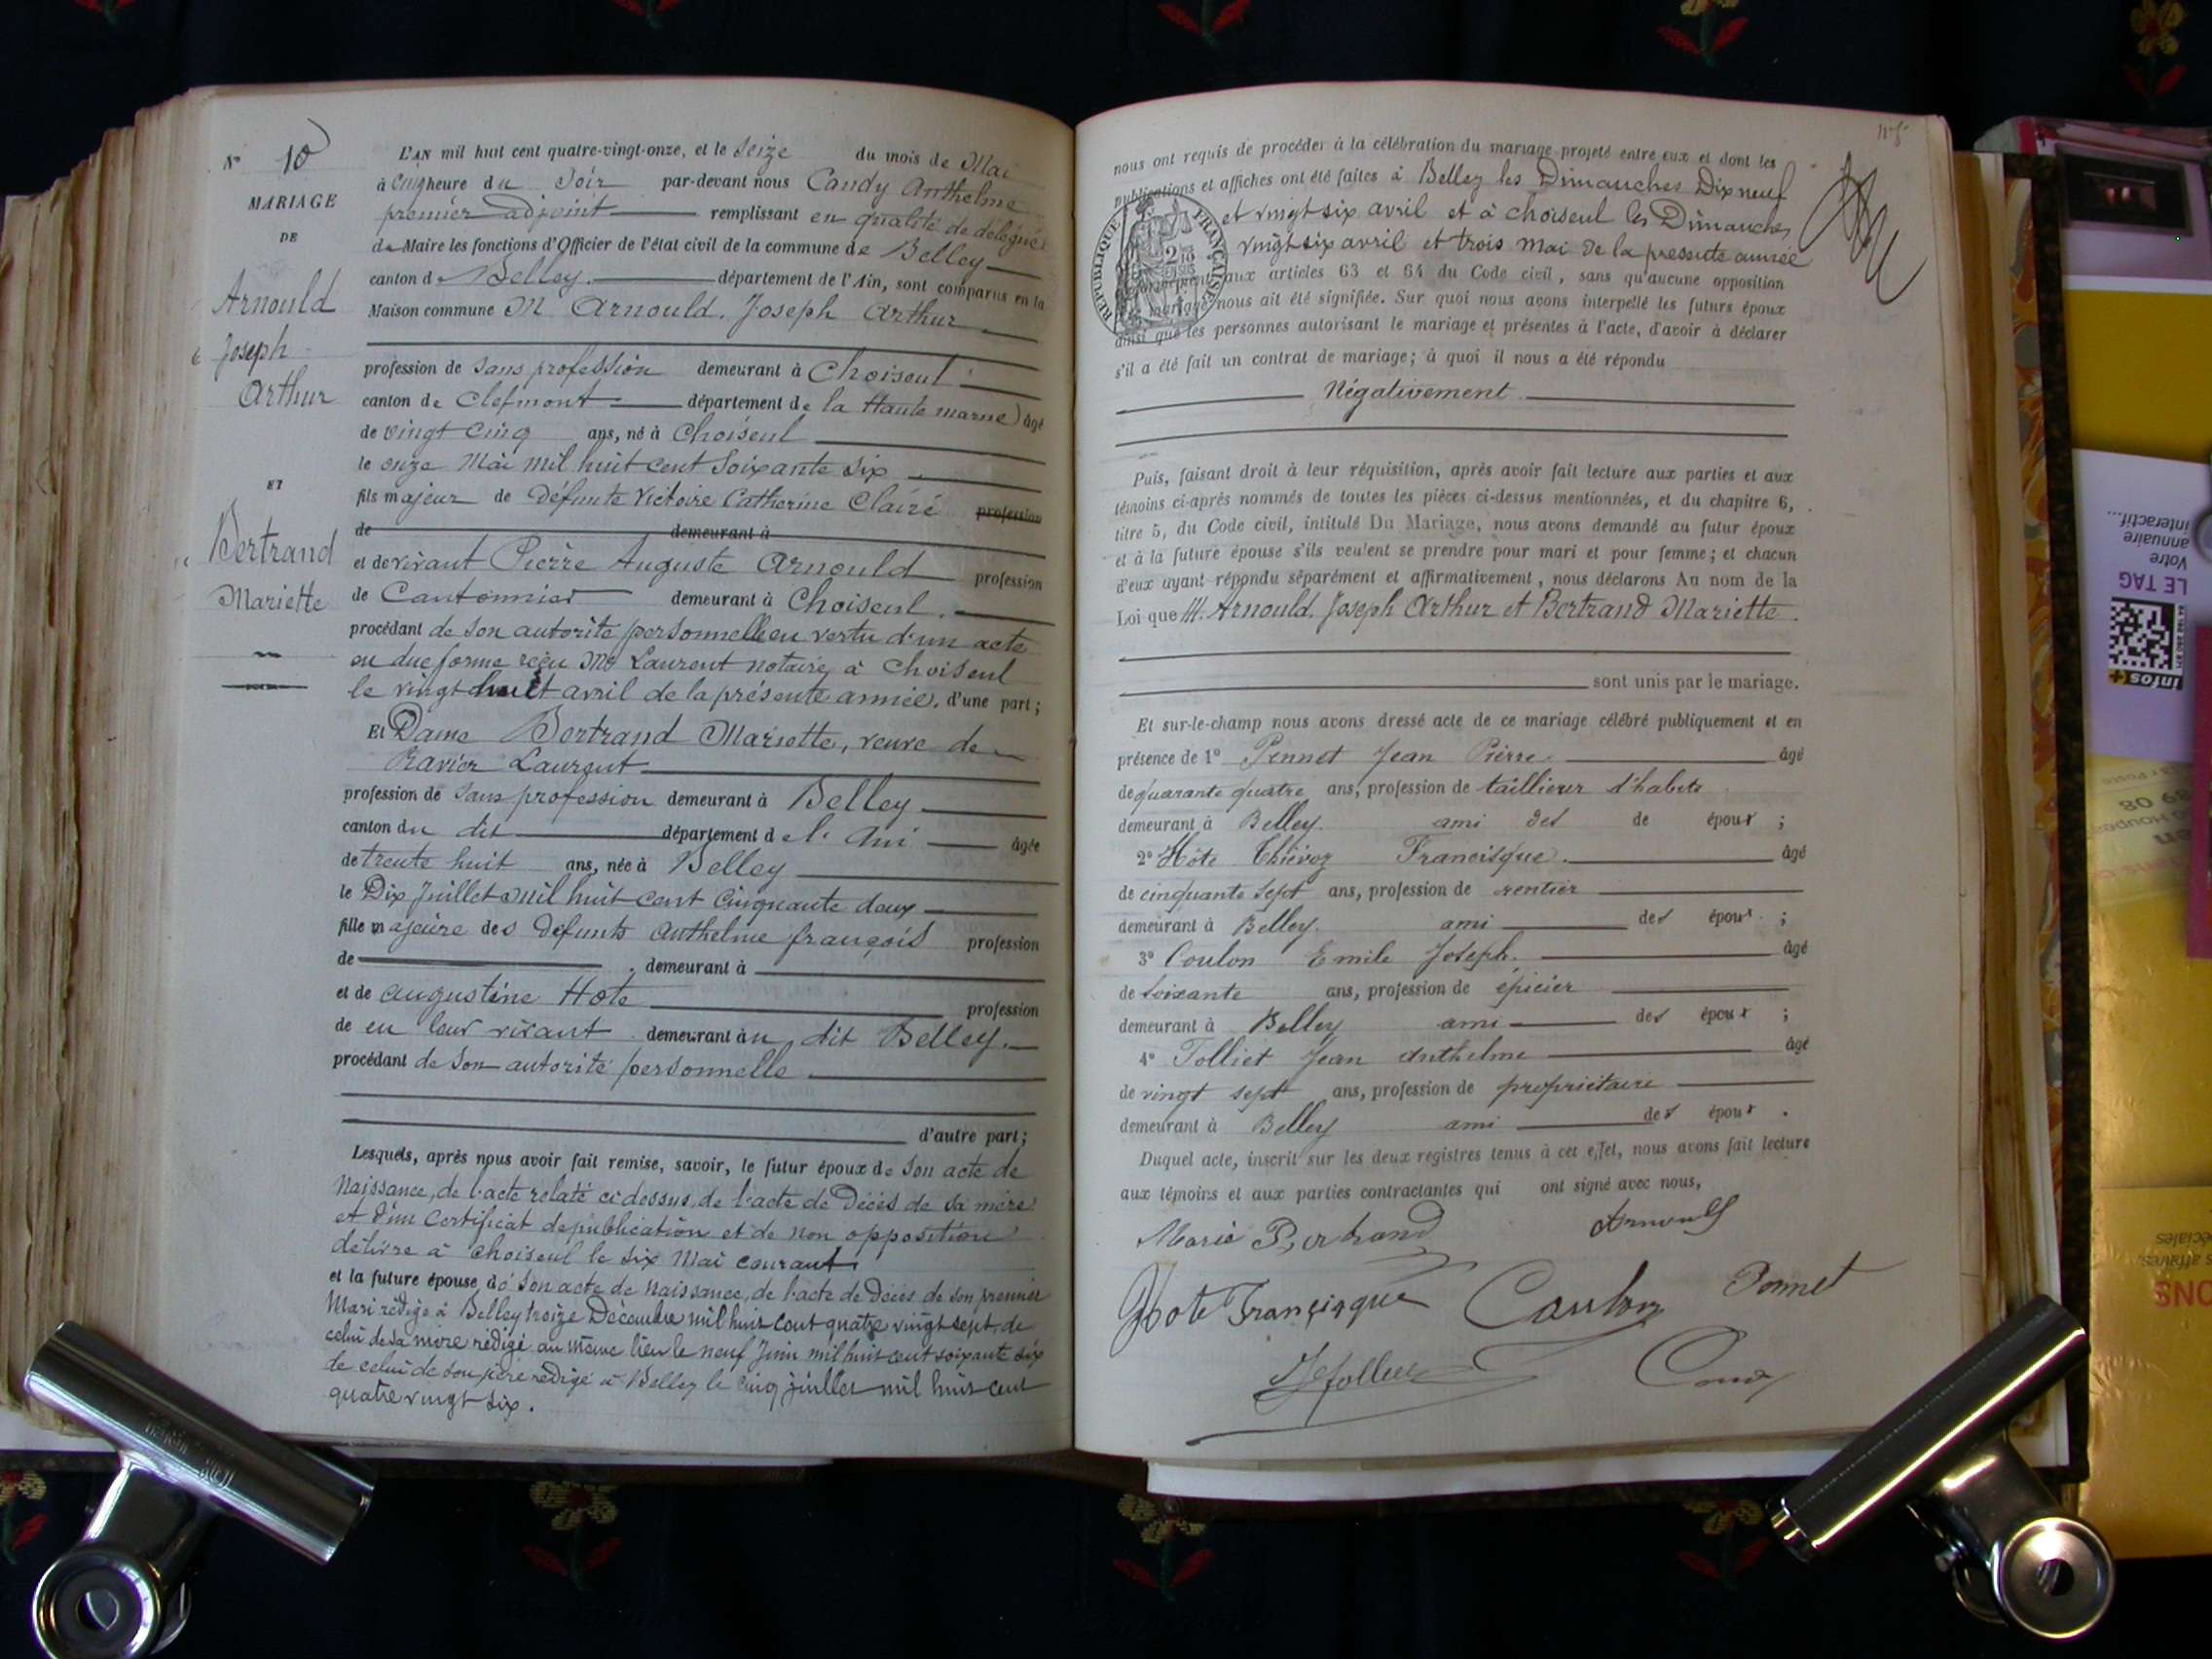 N° 10
MARIAGE
DE
Arnould
Joseph
Arthur
ET
Bertrand
Mariette
L'AN mil huit cent quatre-vingt-onze, et le Seize du mois de Mai
à cinq heure du Soir par-devant nous Candy Anthelme
premier adjoint remplissant en qualité de délégué
de Maire les fonctions d'Officier de l'état civil de la commune de Belley
canton de Belley. département de l'Ain, sont comparus en la
Maison commune M Arnould. Joseph Arthur
profession de sans profession demeurant à Choiseul
canton de Clefmont département de la Haute marne) âgé
de vingt cinq ans, né à Choiseul
le onze Mai mil huit cent soixante six
fils majeur de défunte Victoire Catherine Clairé profession
de demeurant à
et de vivant Pierre Auguste Arnould profession
de Cantonnier demeurant à Choiseul.
procédant de son autorité personnelle en vertu d'un acte
en due forme reçu Me Laurent notaire à Choiseul
le vingt huit avril de la présente année. d'une part;
Et Dame Bertrand Mariette, veuve de
Ravier Laurent
profession de sans profession demeurant à Belley
canton du dit département de l'Ain âgée
de trente huit ans, née à Belley
le Dix Juillet mil huit cent cinquante deux
fille majeure des défunts Anthelme françois profession
de demeurant à
et de augustine Hote profession
de en leur vivant demeurant au dit Belley.
procédant de son autorité personnelle
d'autre part;
Lesquels, après nous avoir fait remise, savoir, le futur époux de son acte de
Naissance, de l'acte relaté ci dessus, de l'acte de Décès de sa mère
et d'un Certificat de publication et de non opposition
délivré à Choiseul le six Mai courant.
et la future épouse de son acte de Naissance, de l'acte de Décès de son premier
Mari rédigé à Belley treize Décembre mil huit cent quatre vingt sept, de
celui de sa mère rédigé au même lieu le neuf Juin mil huit cent soixante six
de celui de son père rédigé à Belley le cinq juillet mil huit cent
quatre vingt six.
nous ont requis de procéder à la célébration du mariage projeté entre eux et dont les
publications et affiches ont été faites à Belley les Dimanches Dix neuf
et vingt six avril et à choiseul les Dimanches
vingt six avril et trois mai de la presente année
RÉPUBLIQUE FRANÇAISE
conformément aux articles 63 et 64 du Code civil, sans qu'aucune opposition
au mariage nous ait été signifiée. Sur quoi nous avons interpellé les futurs époux
ainsi que les personnes autorisant le mariage et présentes à l'acte, d'avoir à déclarer
s'il a été fait un contrat de mariage; à quoi il nous a été répondu
Négativement
Puis, faisant droit à leur réquisition, après avoir fait lecture aux parties et aux
témoins ci-après nommés de toutes les pièces ci-dessus mentionnées, et du chapitre 6,
titre 5, du Code civil, intitulé Du Mariage, nous avons demandé au futur époux
et à la future épouse s'ils veulent se prendre pour mari et pour femme; et chacun
d'eux ayant répondu séparément et affirmativement, nous déclarons Au nom de la
Loi que M. Arnould. Joseph Arthur et Bertrand Mariette
sont unis par le mariage.
Et sur-le-champ nous avons dressé acte de ce mariage célébré publiquement et en
présence de 1° Pennet Jean Pierre. âgé
de quarante quatre ans, profession de taillieur d'habits
demeurant à Belley. ami des de époux ;
2° Hote Thiévoz Francisque. âgé
de cinquante sept ans, profession de rentier
demeurant à Belley. ami des époux ;
3° Coulon Emile Joseph. âgé
de soixante ans, profession de épicier
demeurant à Belley ami des époux ;
4° Tolliet Jean Anthelme âgé
de vingt sept ans, profession de propriétaire
demeurant à Belley ami des époux .
Duquel acte, inscrit sur les deux registres tenus à cet effet, nous avons fait lecture
aux témoins et aux parties contractantes qui ont signé avec nous,
Marie Bertrand Arnould
Hote Françisque Coulon Pennet
Votre
annuaire
interactif...
LE TAG
infos+